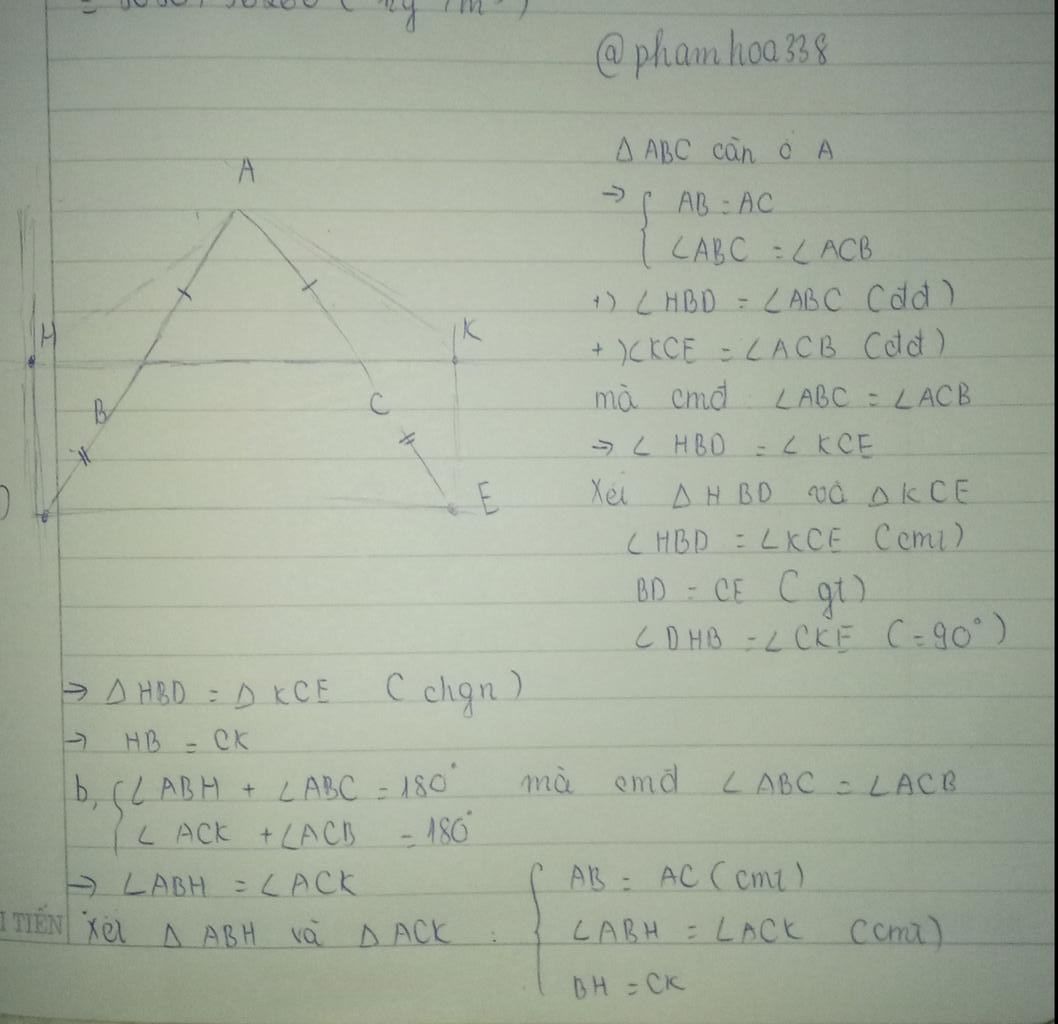 @phamhoa338
A
H
K
B
C
E
Δ ABC cân ở A
→ { AB = AC
∠ABC = ∠ACB
+) ∠HBD = ∠ABC (đđ)
+) ∠KCE = ∠ACB (đđ)
mà cmđ ∠ABC = ∠ACB
→ ∠ HBD = ∠ KCE
Xét Δ HBD và Δ KCE
∠HBD = ∠KCE (cmt)
BD = CE (gt)
∠DHB = ∠CKE (=90°)
→ Δ HBD = Δ KCE (chgn)
→ HB = CK
b, { ∠ABH + ∠ABC = 180° mà cmđ ∠ABC = ∠ACB
∠ ACK + ∠ACB = 180°
→ ∠ABH = ∠ACK
Xét Δ ABH và Δ ACK : { AB = AC (cmt)
∠ABH = ∠ACK (cmt)
BH = CK
TIẾN